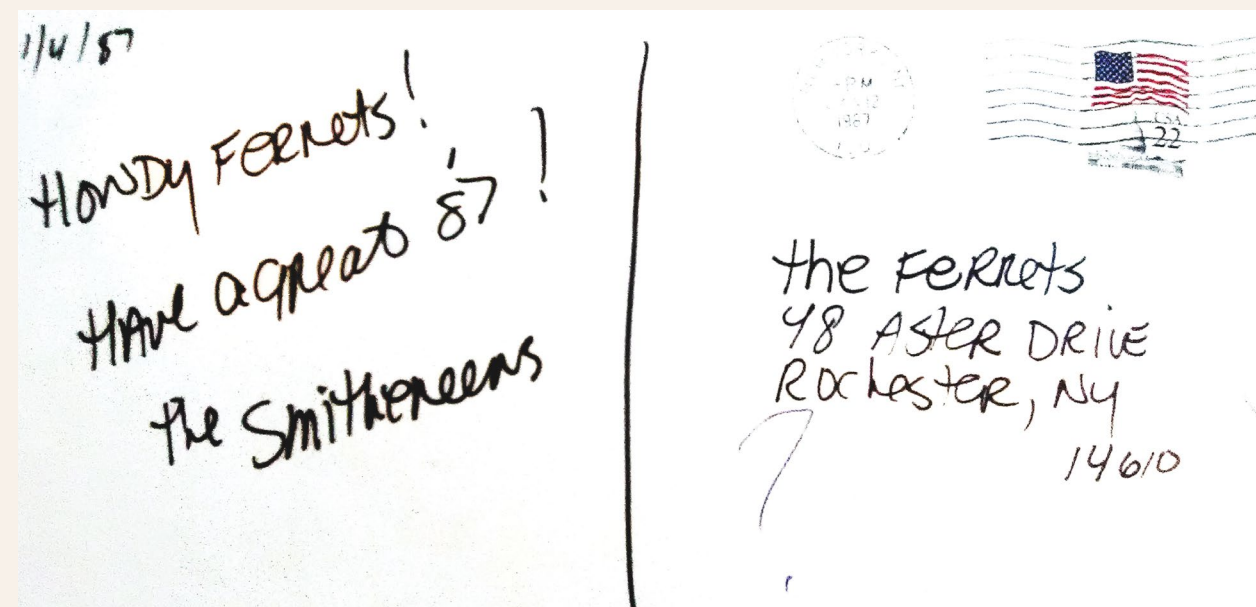 1/4/87
HOWDY FERRETS!
HAVE a GREAT '87!
the Smithereens
PM
12
1987
USA
22
the FERRETS
48 ASTER DRIVE
ROCHESTER, NY
14610
?